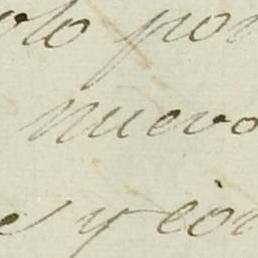 olo por
nuevo
es y con